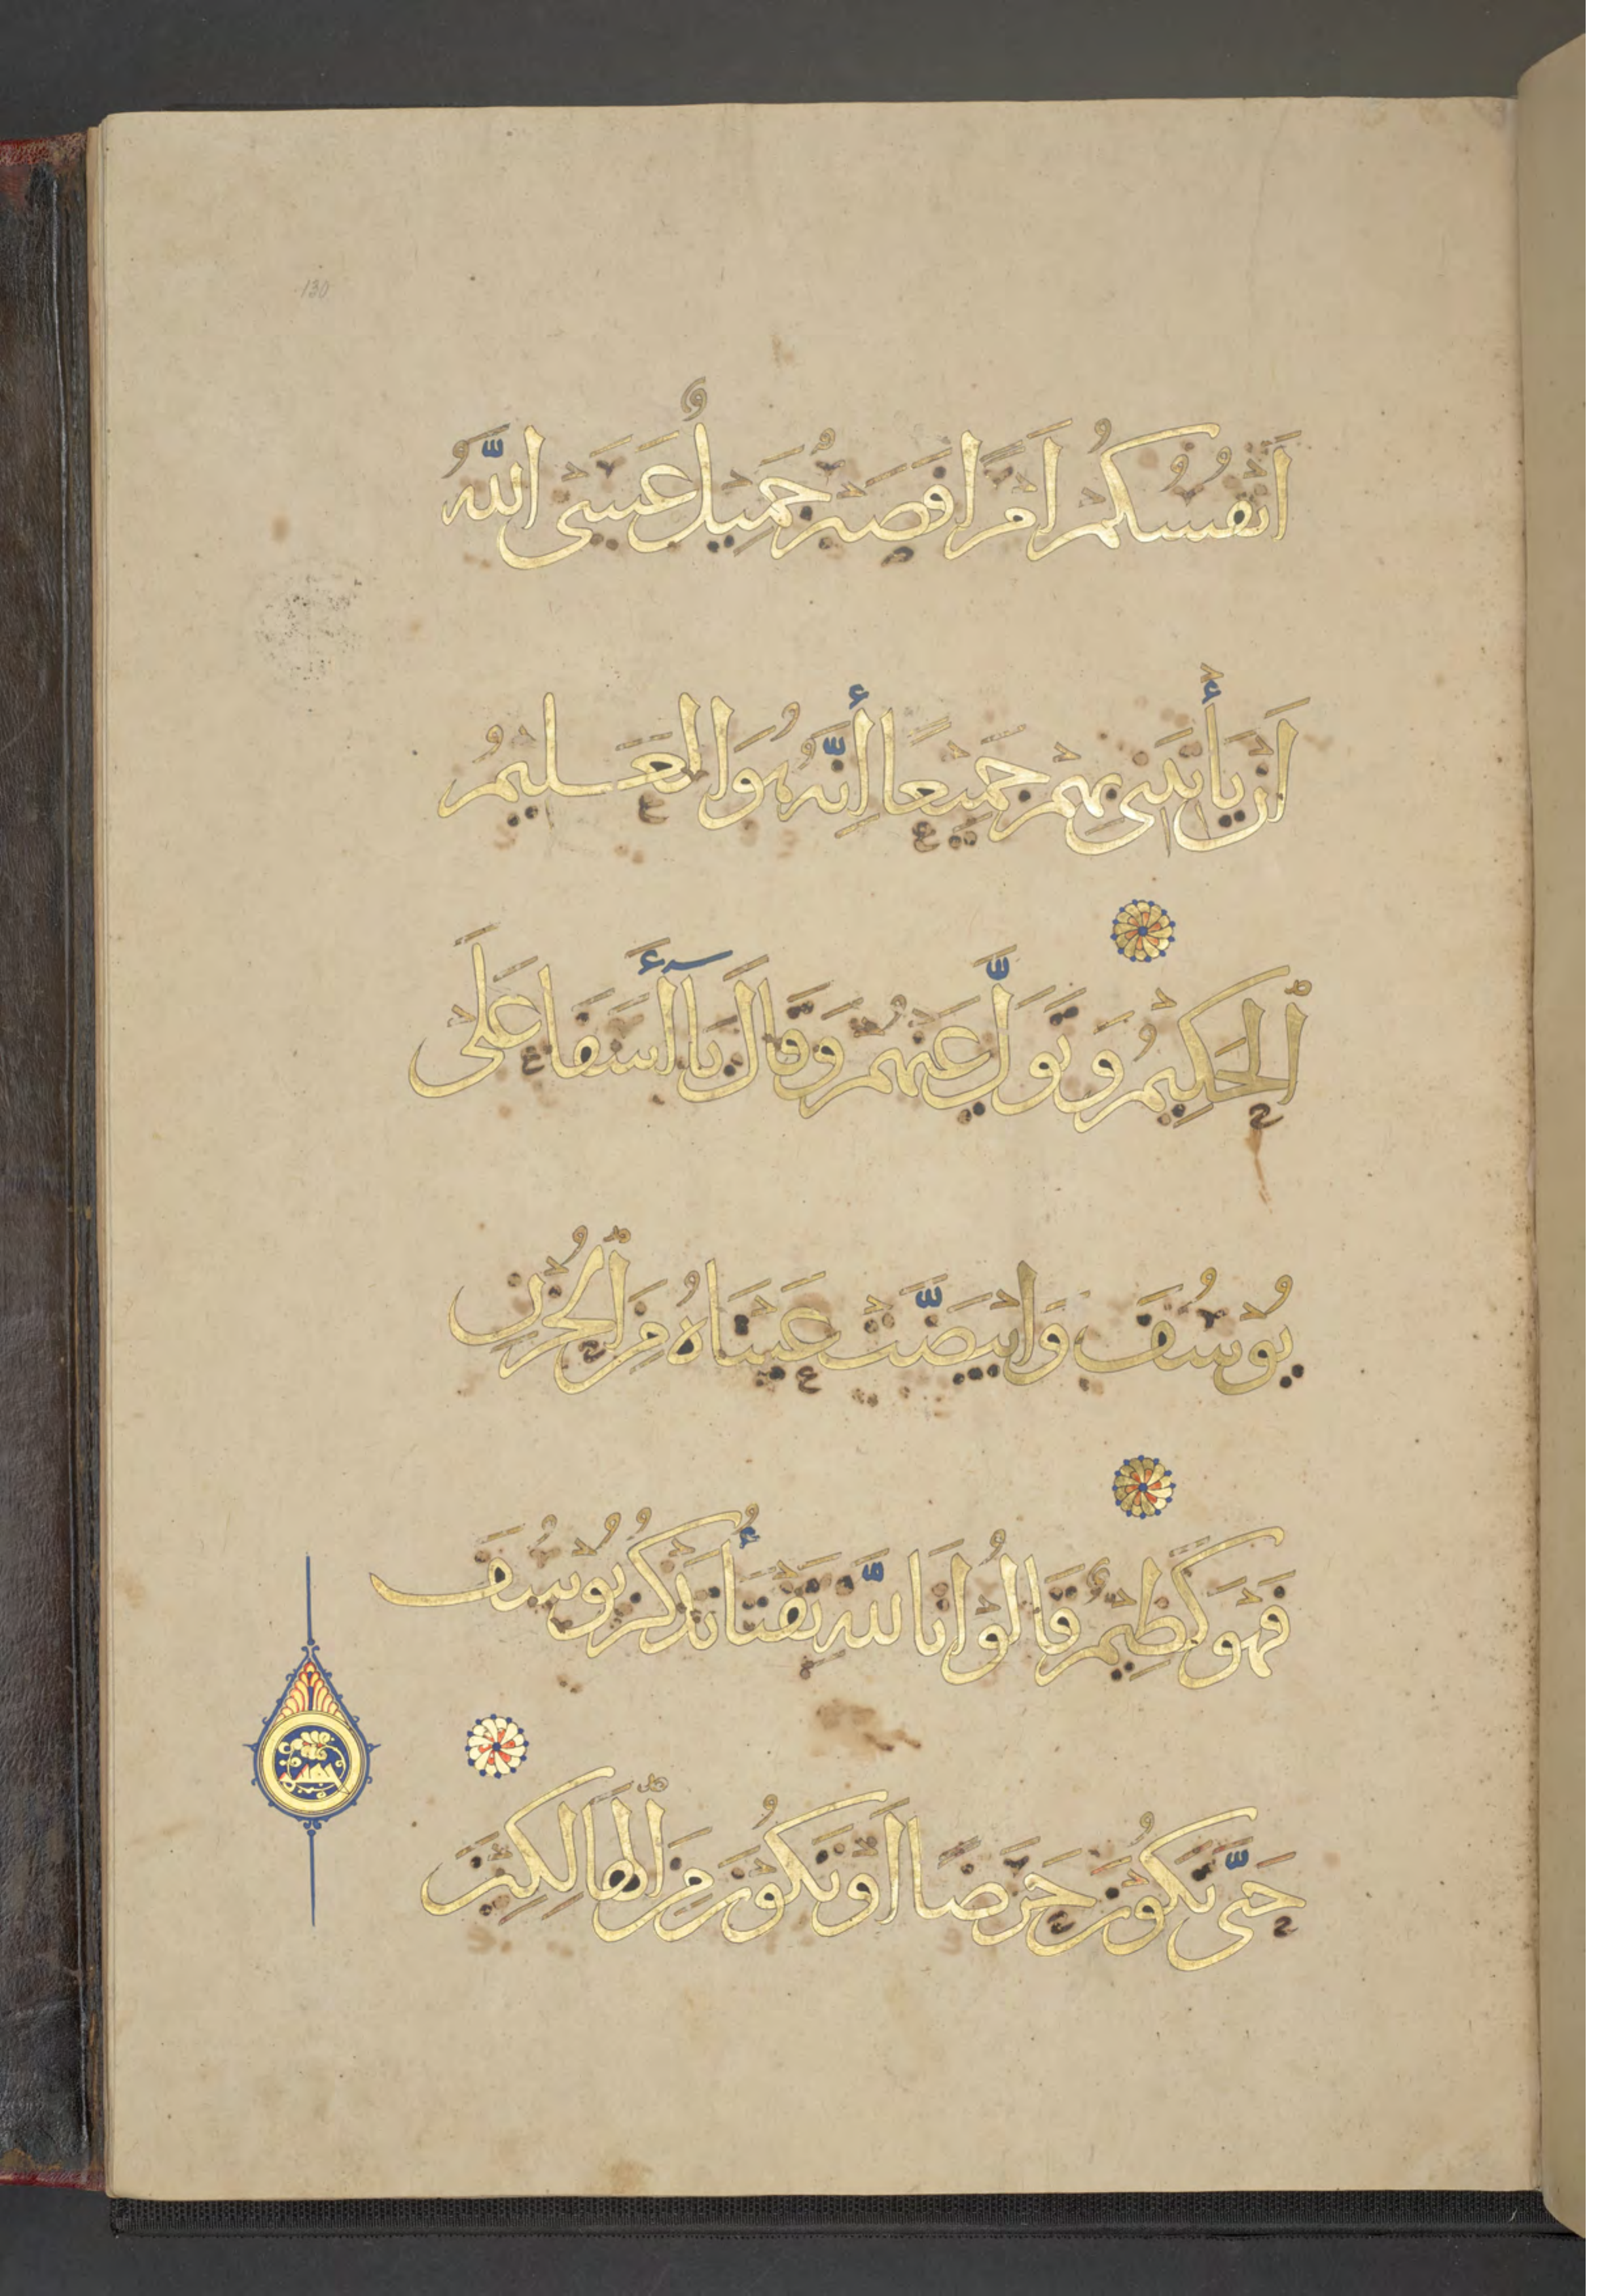 130
اَنْفُسُكُمْ اَمْرًا فَصَبْرٌ جَمِيْلٌ عَسَى اللّٰهُ
اَنْ يَأْتِيَنِى بِهِمْ جَمِيْعًا إِنَّهُ هُوَ الْعَلِيْمُ
ٱلْحَكِيْمُ وَتَوَلَّى عَنْهُمْ وَقَالَ يَاۤ أَسَفَا عَلَى
يُوْسُفَ وَابْيَضَّتْ عَيْنَاهُ مِنَ ٱلْحُزْنِ
فَهُوَ كَظِيْمٌ قَالُوْا تَاللّٰهِ تَفْتَأُ تَذْكُرُ يُوْسُفَ
حَتَّى تَكُوْنَ حَرَضًا اَوْ تَكُوْنَ مِنَ ٱلْهَالِكِيْنَ